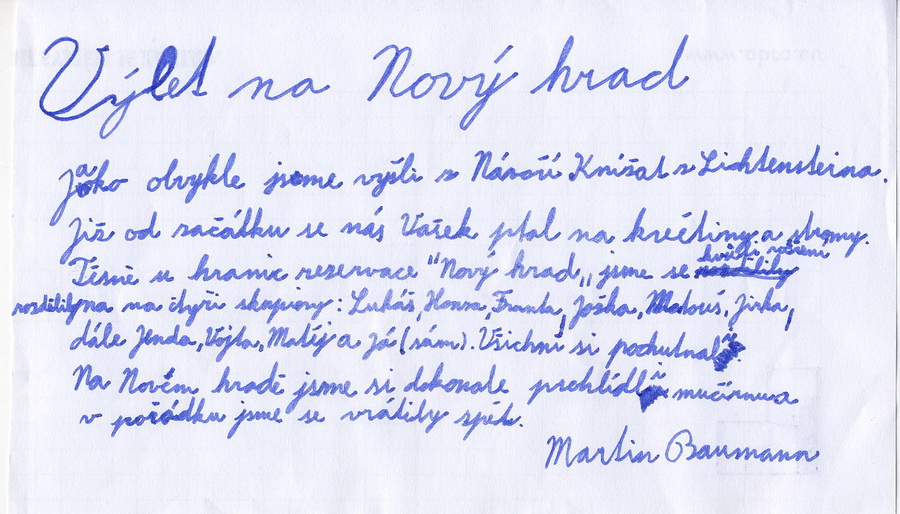 Výlet na Nový hrad
Jako obvykle jsme vyšli z Nádvoří Knížat z Lichtensteina.
Již od začátku se nás Vašek ptal na květiny a stromy.
Těsně u hranic rezervace "Nový hrad" jsme se
kvůli
rozdělily na čtyři skupiny: Lukáš, Honza, Franta, Joška, Matouš, Jirka,
dále Jenda, Vojta, Matěj a já (sám). Všichni si pochutnali
Na Novém hradě jsme si dokonale prohlídli mučírnu a
v pořádku jsme se vrátily zpět.
Martin Baumann